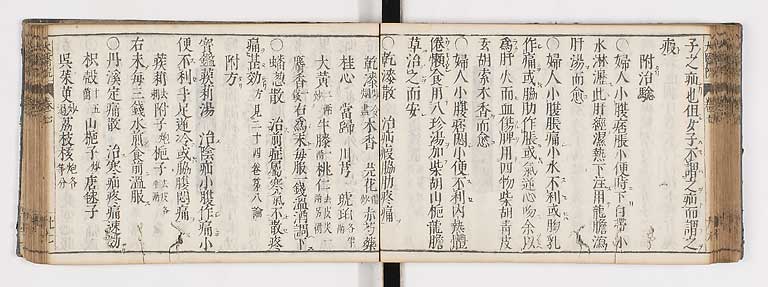 子之疝也但女子不謂之疝而謂之
瘕
附治驗
○婦人小腹痞脹小便時下白帶小
水淋瀝此肝經濕熱下注用龍膽瀉
肝湯而愈
○婦人小腹脹痛小水不利或胸乳
作痛或脇肋作脹或氣逆心忡余以
爲肝火而血傷脾用四物柴胡青皮
玄胡索木香而愈
○婦人小腹痞悶小便不利內熱體
倦懶食用八珍湯加柴胡山梔龍膽
草治之而安
○乾漆散 治疝瘕脇肋疼痛
乾漆 木香 芫花 赤芍藥
桂心 當歸 川芎 琥珀
大黃 牛膝 桃仁
麝香 右爲末每服一錢溫酒調下
○蟠葱散 治前症屬寒氣不散疼
痛甚効 方見二十四卷第八論
附方
蒺莉湯 治陰疝小腹作痛小
便不利手足逆冷或脇腹悶痛
蒺莉 附子 梔子
右末每三錢水煎食前溫服
○丹溪定痛散 治寒疝疼痛速効
枳殼 十五 山梔子 唐毬子
吳茱萸 荔枝核 炮各等分